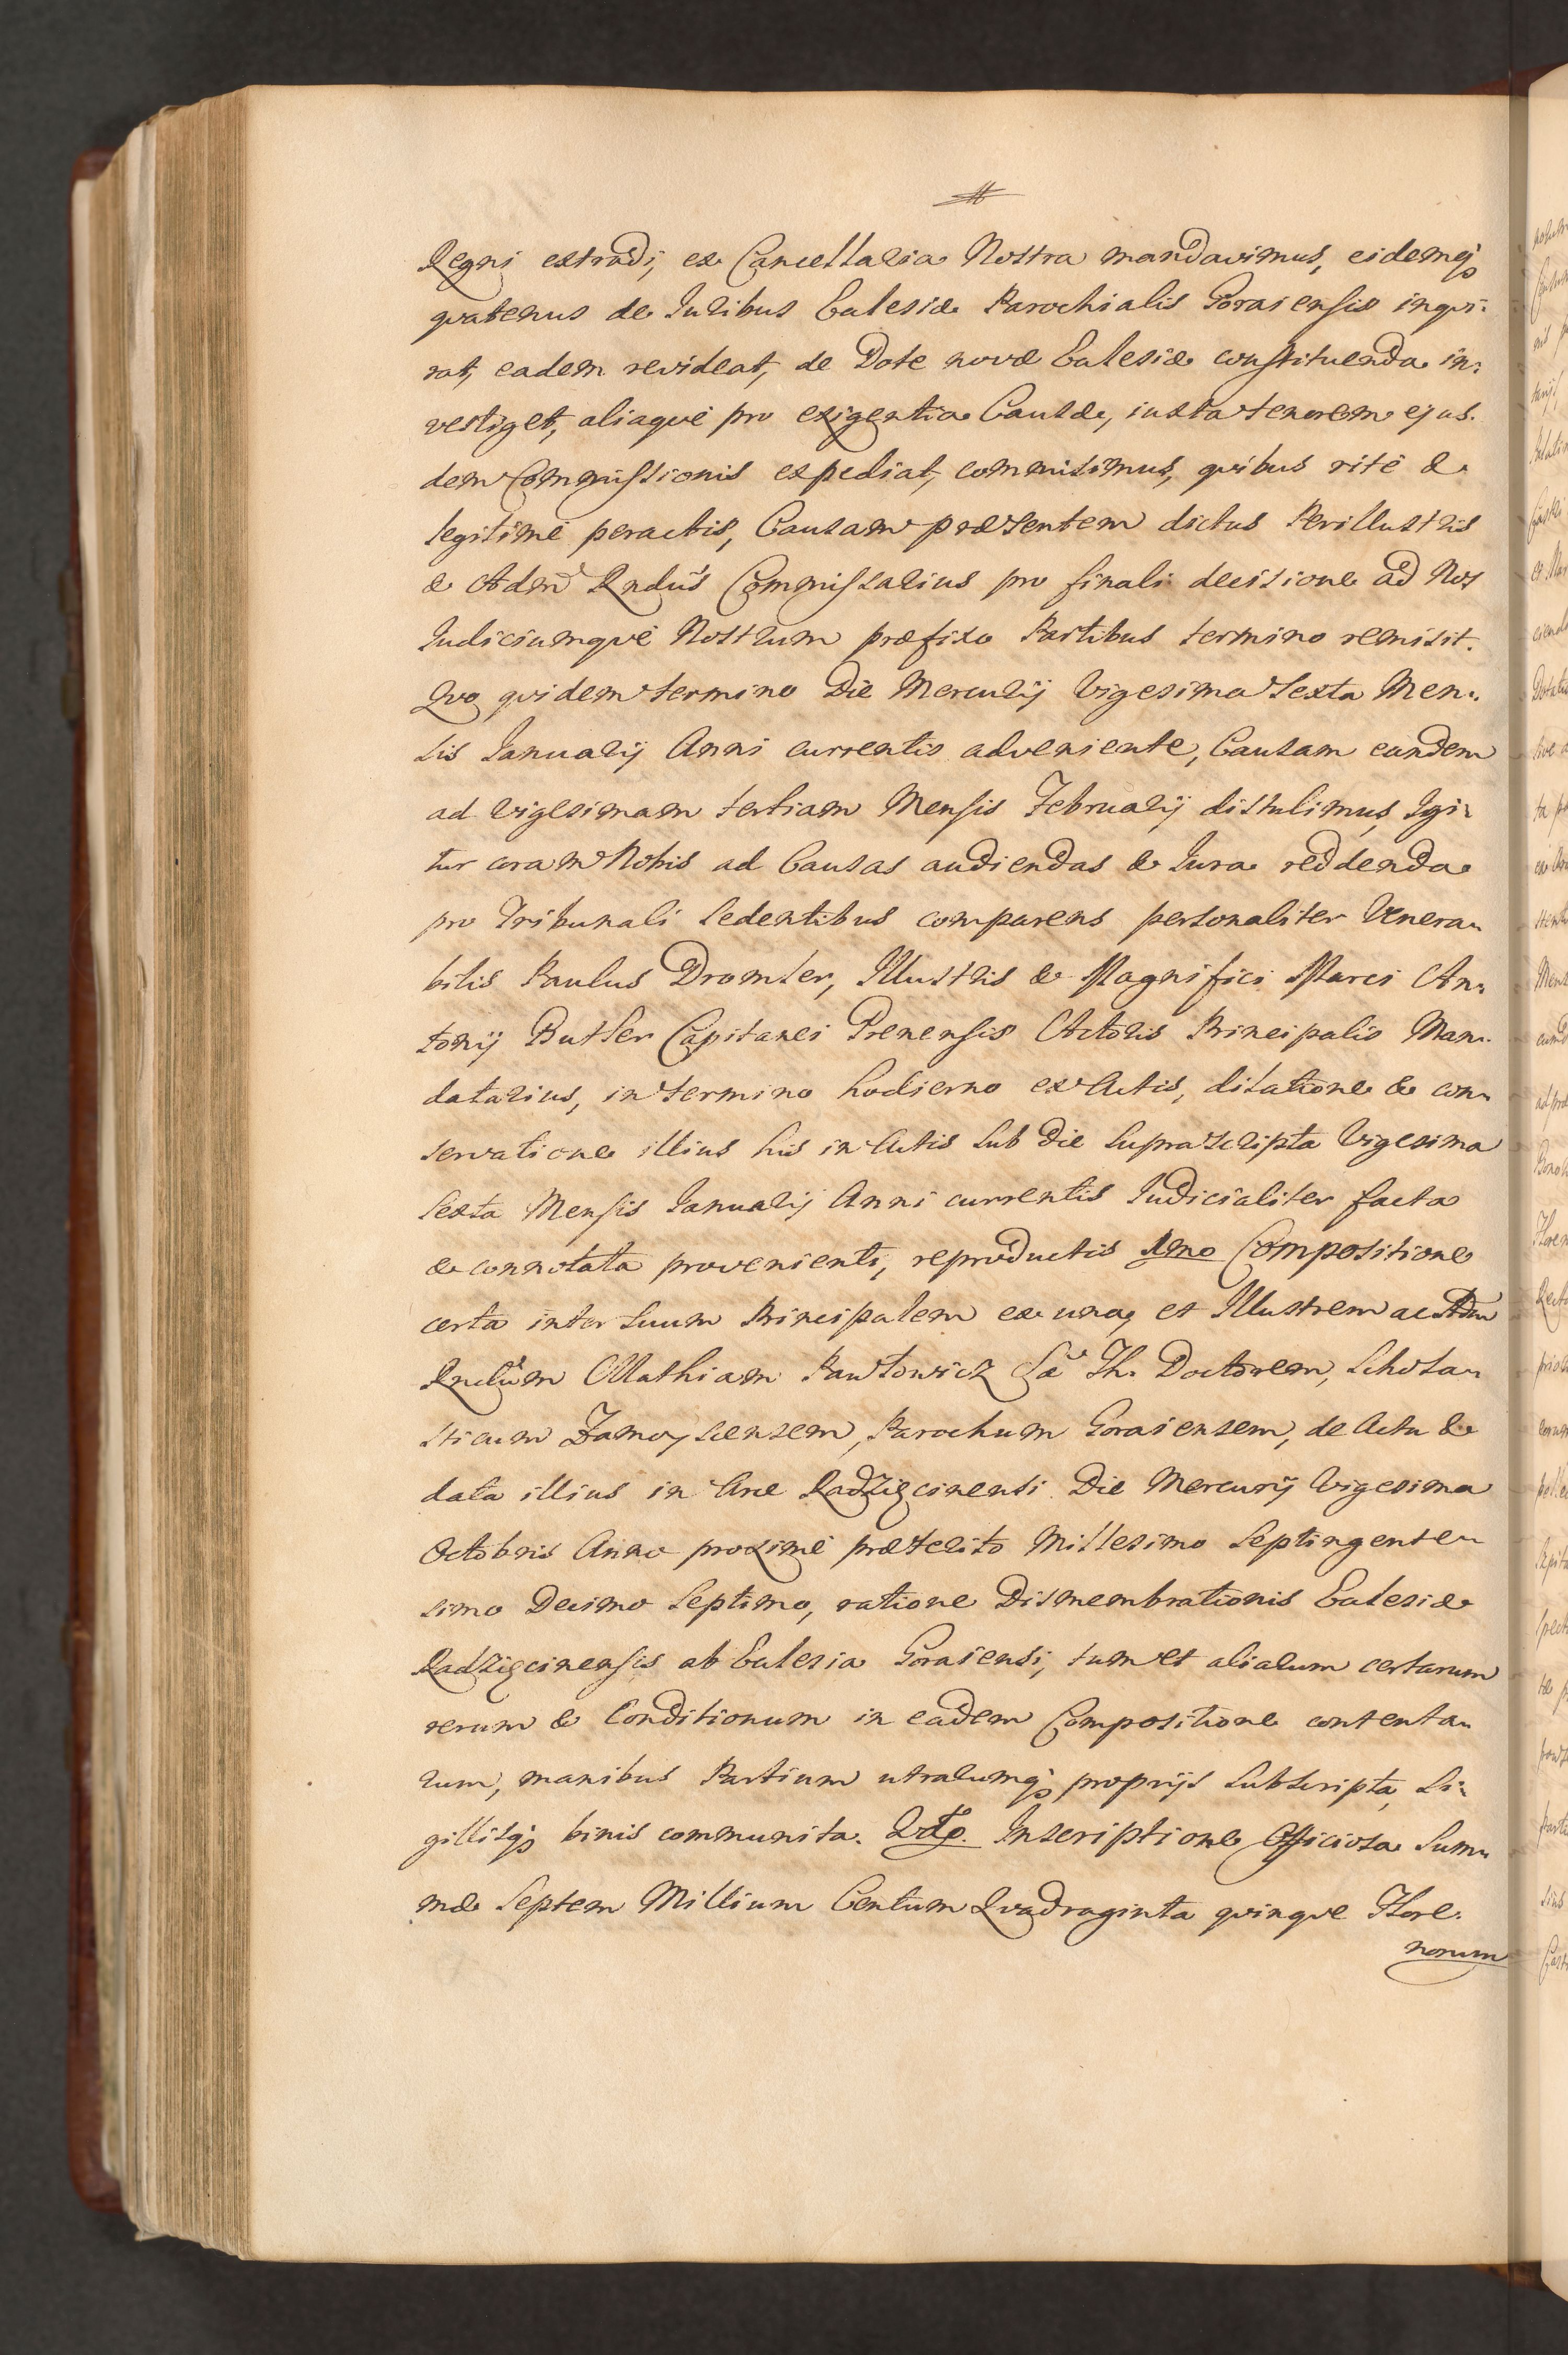 Regni extradi, ex Cancellaria Nostra mandavimus, eidemq;
qvatenus de Iuribus Ecclesiæ Parochialis Goraiensis inqvi:
rat, eadem revideat, de Dote novæ Ecclesiæ constituenda in:
vestiget, aliaqvè pro exigentia Causæ, iuxta tenorem ejus.
dem Commissionis expediat, commisimus, qvibus ritè &
legitimè peractis, Causam præsentem dictus Perillustris
& Adm̃ Rndũs Commissarius pro finali decisione ad Nos
Iudiciumqvè Nostrum præfixo Partibus termino remisit.
Qvo qvidem termino Die Mercurij Vigesima Sexta Men:
sis Ianuarij Anni currentis adveniente, Causam eandem
ad Vigesimam tertiam Mensis Februarij distulimus, Igi:
tur coram Nobis ad Causas audiendas & Iura reddenda
pro Tribunali Sedentibus comparens personaliter Venera:
bilis Paulus Dromler, Illustris & Magnifici Marci An:
tonij Butler Capitanei Prenensis Actoris Principalis Man:
datarius, in termino hodierno ex Actis, dilatione & con:
servatione illius his in Actis Sub Die Suprascripta Vigesima
Sexta Mensis Ianuarij Anni currentis Iudicialiter facta
& connotata provenienti, reproductis 1mo Compositione
certa inter Suum Principalem ex una, et Illustrem ac Adm
Rndũm Mathiam Pawłowicz Sæ Th. Doctorem, Schola:
sticum Zamoyscensem, Parochum Goraiensem, de Actu &
data illius in Arce Radzięcinensi Die Mercurij Vigesima
Octobris Anno proximè præterito Millesimo Septingente:
simo Decimo Septimo, ratione Dismembrationis Ecclesiæ
Radzięcinensis ab Ecclesia Goraiensi, tum et aliarum certarum
rerum & Conditionum in eadem Compositione contenta:
rum, manibus Partium utrarumq; proprijs Subscripta, Si:
gillisq; binis communita. 2do. Inscriptione Officiosa Sum:
mæ Septem Millium Centum Qvadraginta qvinqve Flore.
norum